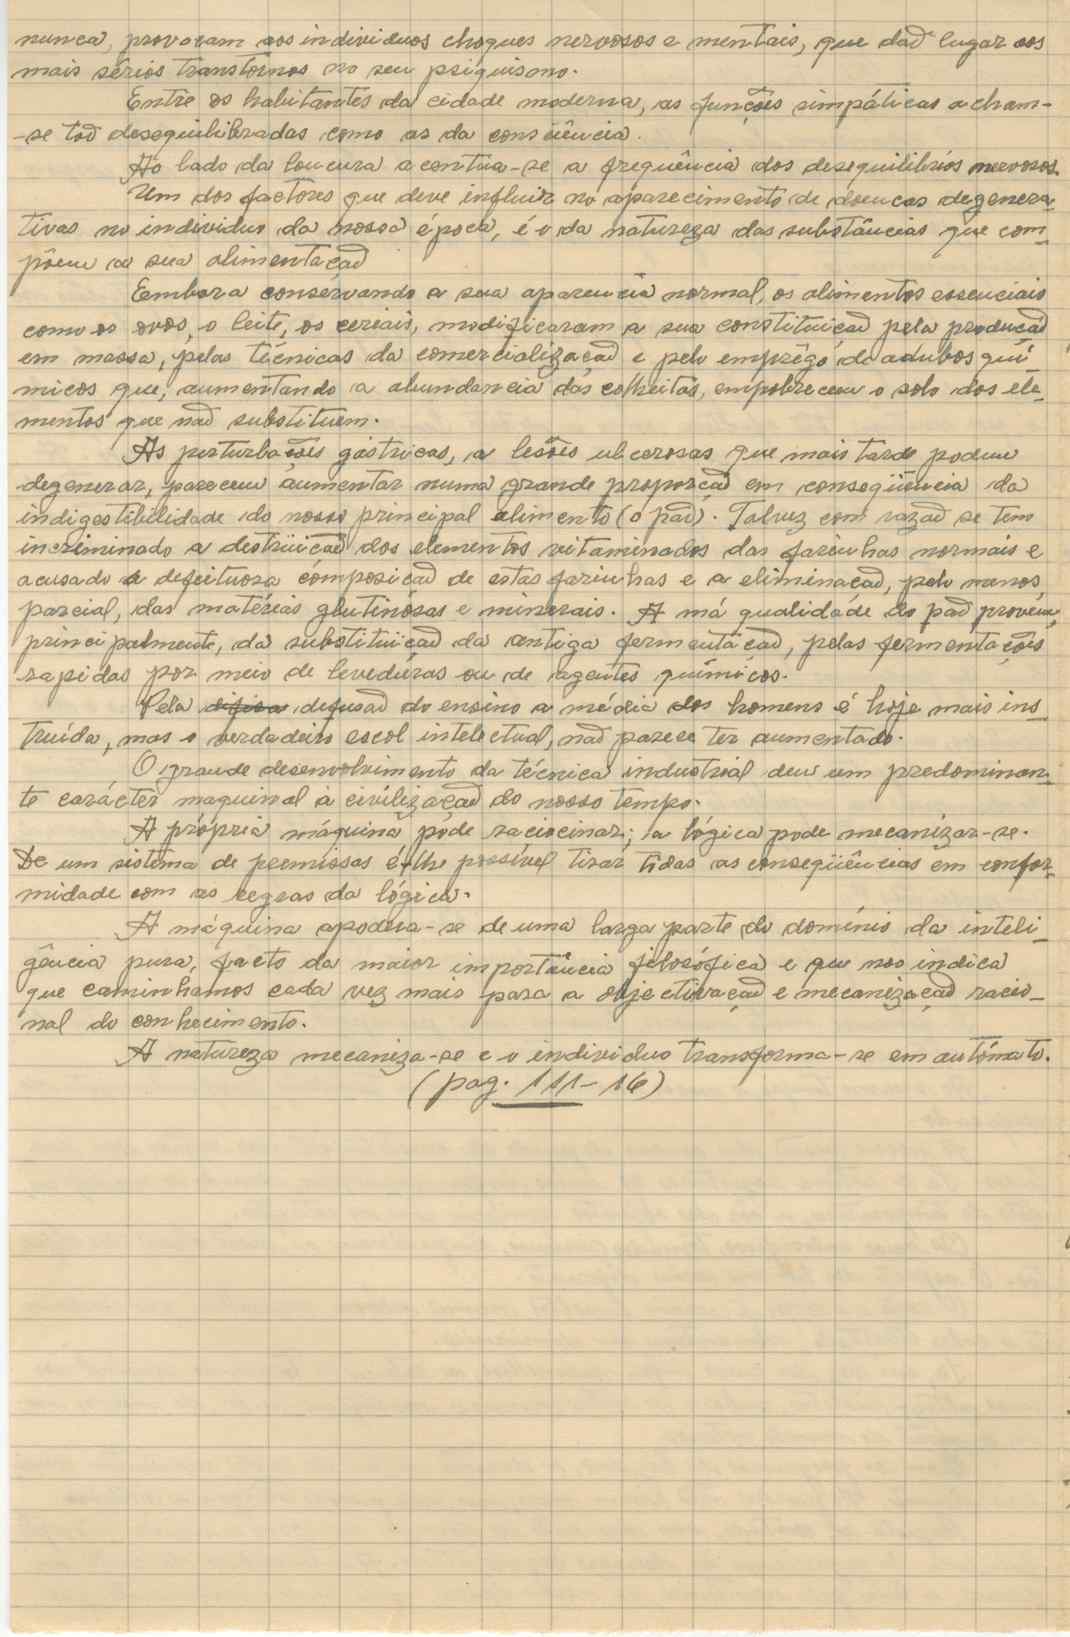 nunca, provocam aos individuos choques nervosos e mentais, que dão lugar aos
mais sérios transtornos no seu psiquismo.
Entre os habitantes da cidade moderna, as funções simpáticas acham-
-se tão desequilibradas como as da consciência.
Ao lado da loucura acentua-se a frequência dos desequilibrios nervosos.
Um dos factores que deve influir no aparecimento de doenças degenera-
tivas no individuo da nossa época, é o da natureza das substâncias que com-
põem a sua alimentação
Embora conservando a sua aparencia normal, os alimentos essenciais
como os ovos, o leite, os cereais, modificaram a sua constituição pela produção
em massa, pelas técnicas da comercialização e pelo emprêgo de adubos quí-
micos que, aumentando a abundancia das colheitas, empobrecem o solo dos ele-
mentos que não substituem.
As perturbações gástricas, a lesões ulcerosas que mais tarde podem
degenerar, parecem aumentar numa grande proporção em conseqüência da
indigestibilidade do nosso principal alimento (o pão). Talvez com razão se tem
incriminado a destrüição dos elementos vitaminados das farinhas normais e
acusado a defeituosa composição de estas farinhas e a eliminação, pelo menos
parcial, das matérias glutinósas e minerais. A má qualidade do pão provém,
principalmente, da substitüição da antiga fermentação, pelas fermentações
rapidas por meio de levedúras ou de agentes químicos.
Pela difisa defusão do ensino a média dos homens é hoje mais ins-
truída, mas o verdadeiro escol intelectual, não parece ter aumentado.
O grande desenvolvimento da técnica industrial deu um predominan-
te carácter maquinal à civilização do nosso tempo.
A própria máquina póde raciocinar; a lógica pode mecanizar-se.
De um sistema de premissas é-lhe possível tirar tôdas as conseqüências em confor-
midade com as regras da lógica.
A máquina apodera-se de uma larga parte do domínio da inteli-
gência pura, facto da maior importância filosófica e que nos indica
que caminhamos cada vez mais para a objectivação e mecanização racio-
nal do conhecimento.
A natureza mecaniza-se e o individuo transforma-se em autómato.
(pag. 111-16)